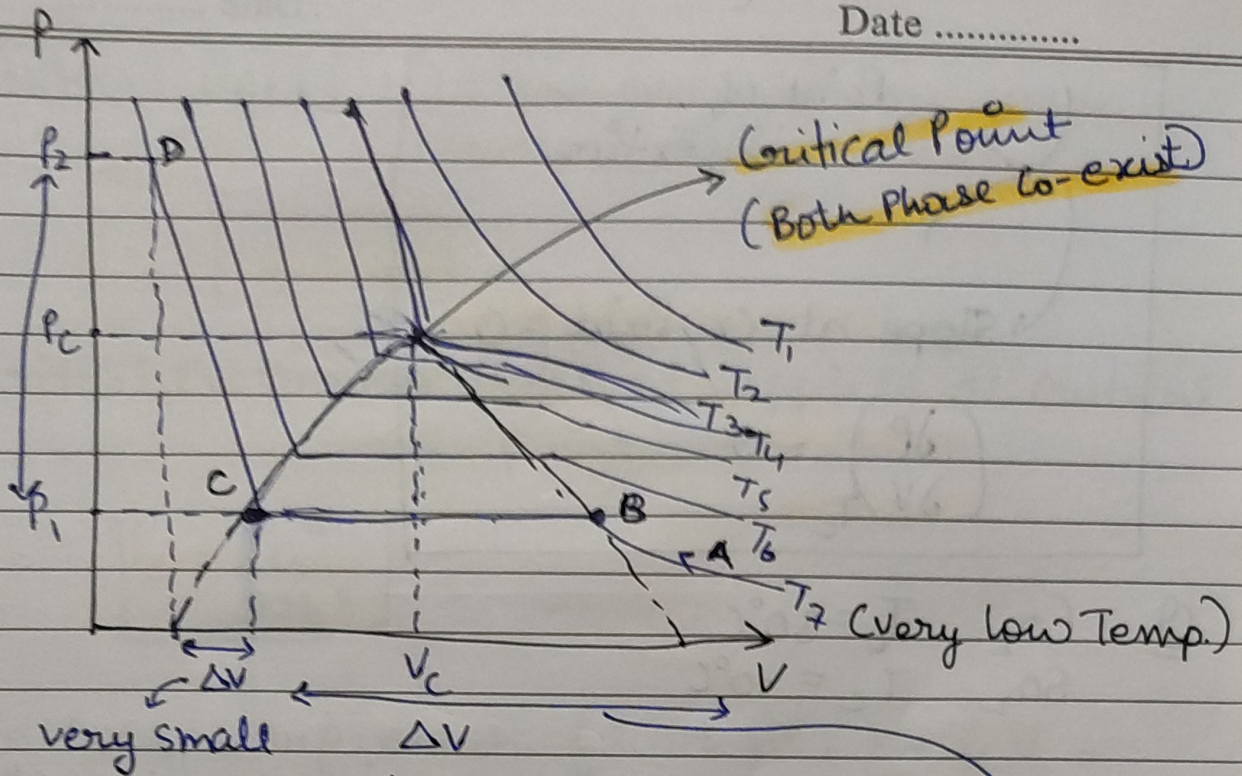 Date ..............
P
P₂
D
Critical Point
(Both Phase Co-exist)
P_C
T₁
T₂
T₃
T₄
T₅
C
B
P₁
A
T₆
T₇ (Very low Temp.)
ΔV
V_C
V
very small
ΔV